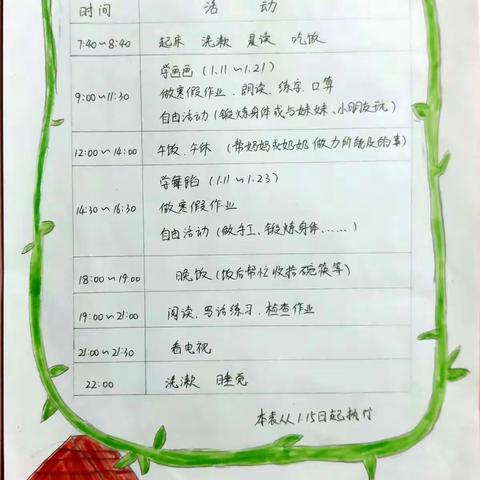 时间 活动
7:40~8:40 起床 洗漱 晨读 吃饭
学画画（1.11~1.21）
9:00~11:30 做寒假作业、朗读、练字、口算
自由活动（锻炼身体或与妹妹、小朋友玩）
12:00~14:00 午饭、午休（帮妈妈或奶奶做力所能及的事）
学舞蹈（1.11~1.23）
14:30~16:30 做寒假作业
自由活动（做手工、锻炼身体、……）
18:00~19:00 晚饭（饭后帮忙收拾碗筷等）
19:00~21:00 阅读、写话练习、检查作业
21:00~21:30 看电视
22:00 洗漱 睡觉
本表从1.15日起执行